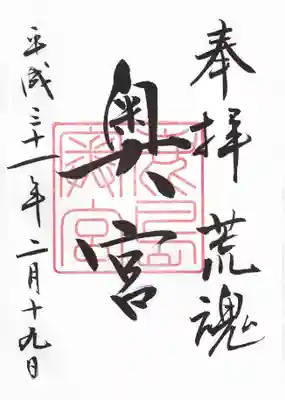 奉拝 荒魂
奥宮
平成三十一年二月十九日